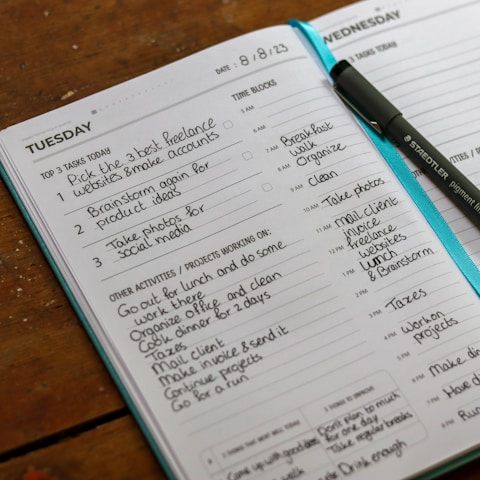 TUESDAY
DATE: 8/8/23
TOP 3 TASKS TODAY
1 Pick the 3 best freelance
websites & make accounts
2 Brainstorm again for
product ideas
3 Take photos for
social media
OTHER ACTIVITIES / PROJECTS WORKING ON:
Go out for lunch and do some
work there
Organize office and clean
Cook dinner for 2 days
Taxes
Mail client
Make invoice & send it
Continue projects
Go for a run
3 THINGS THAT WENT WELL TODAY
Come up with good ideas
walk
3 THINGS TO IMPROVE
Don't plan to much
for one day
Take regular breaks
Drink enough
TIME BLOCKS
5 AM
6 AM
7 AM Breakfast
walk
8 AM Organize
9 AM clean
10 AM Take photos
11 AM mail client
invoice
12 PM freelance
websites
1 PM lunch
& Brainstorm
2 PM
3 PM Taxes
4 PM Work on
projects
5 PM
6 PM Make din
7 PM Have di
8 PM Run
WEDNESDAY
3 TASKS TODAY
STAEDTLER
pigment lin